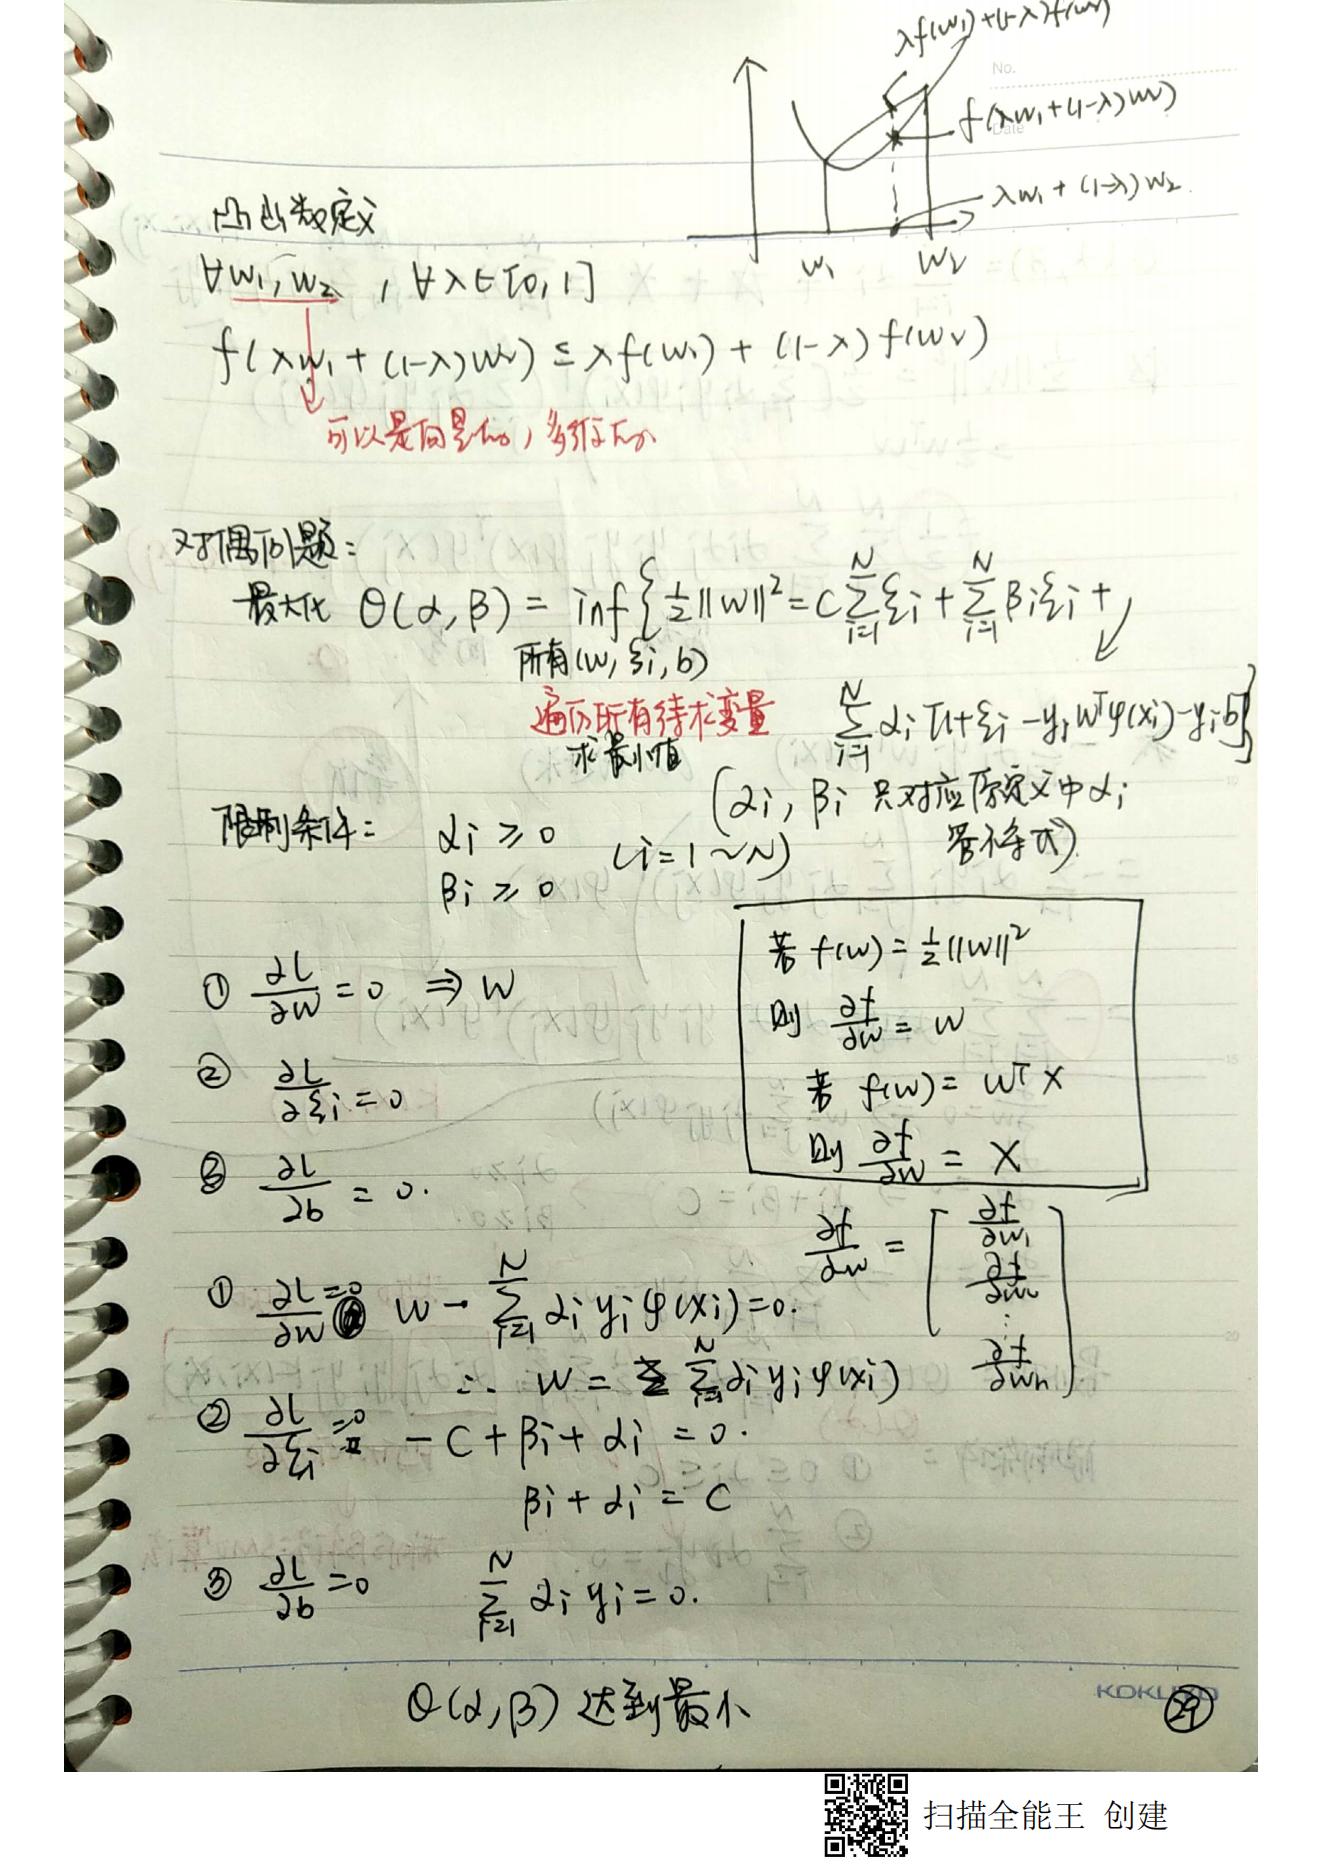 λf(w₁)+(1-λ)f(w₂)
No.
Date
f(λw₁+(1-λ)w₂)
λw₁+(1-λ)w₂.
w₁ w₂
凸函数定义
∀w₁,w₂ , ∀λ∈[0,1]
f(λw₁+(1-λ)w₂) ≤ λf(w₁) + (1-λ)f(w₂)
可以是向量, 多维
对偶问题:
最大化 θ(α,β) = inf{½||w||²=C∑ᵢ₌₁ᴺξᵢ+∑ᵢ₌₁ᴺβᵢξᵢ+
所有(w,ξᵢ,b)
∑ᵢ₌₁ᴺαᵢ[1+ξᵢ-yᵢwᵀφ(xᵢ)-yᵢb]}
遍历所有待求变量
求最小值
(αᵢ,βᵢ 只对应原定义中αᵢ
不等式)
限制条件: αᵢ≥0 (i=1~N)
βᵢ≥0
若 f(w)=½||w||²
则 ∂f/∂w = w
若 f(w)= wᵀx
则 ∂f/∂w = x
① ∂L/∂w=0 ⇒ w
② ∂L/∂ξᵢ=0
③ ∂L/∂b = 0.
∂f/∂w = [∂f/∂w₁ ∂f/∂w₂ ⋮ ∂f/∂wₙ]
① ∂L/∂w=0 w-∑ᵢ₌₁ᴺαᵢyᵢφ(xᵢ)=0.
∴ w = ∑ᵢ₌₁ᴺαᵢyᵢφ(xᵢ)
② ∂L/∂ξᵢ=0 -C+βᵢ+αᵢ=0.
βᵢ+αᵢ=C
③ ∂L/∂b=0 ∑ᵢ₌₁ᴺαᵢyᵢ=0.
θ(α,β) 达到最小
KOKUYO
29
扫描全能王 创建